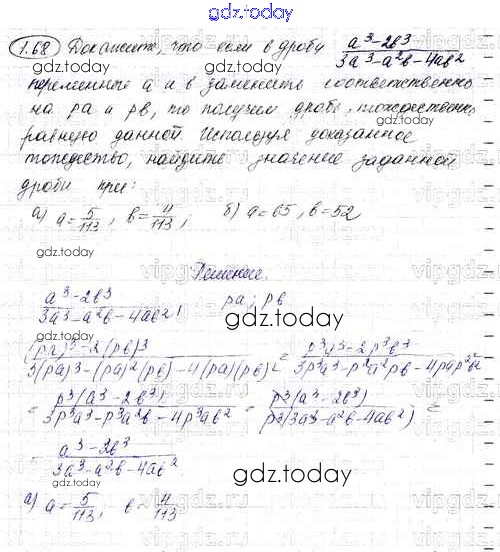 gdz.today
1.68 Докажите, что если в дробу (a³-2b³)/(3a³-a²b-4ab²)
gdz.today
переменные a и b заменить соответственно
на pa и pb, то получим дробь, тождественно
равную данной. Используя доказанное
тождество, найдите значение заданной
дроби при:
gdz.today
а) a=5/113, b=4/113; б) a=65, b=52
gdz.today
Решение.
(a³-2b³)/(3a³-a²b-4ab²); pa; pb
gdz.today
((pa)³-2(pb)³)/(3(pa)³-(pa)²(pb)-4(pa)(pb)²) = (p³a³-2p³b³)/(3p³a³-p²a²pb-4pap²b²)
= p³(a³-2b³)/(3p³a³-p³a²b-4p³ab²) = p³(a³-2b³)/(p³(3a³-a²b-4ab²)) =
= (a³-2b³)/(3a³-a²b-4ab²)
gdz.today
а) a=5/113, b=4/113